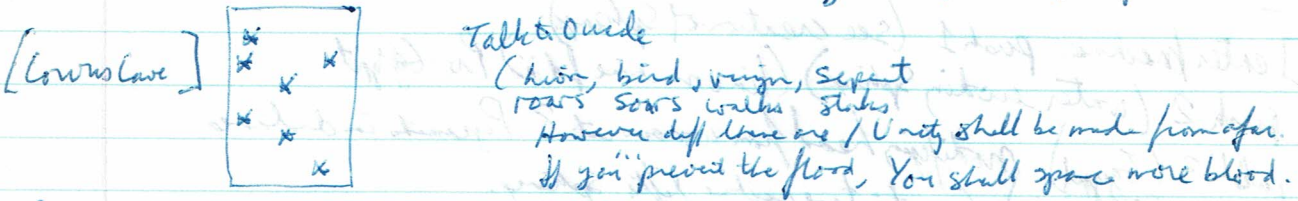 [Cave]
Talk to
(Lion, bird, virgin, sepent
roars soars walks
However diff these are / Unity shall be made from afar.
If you prevent the flood, You shall space more blood.